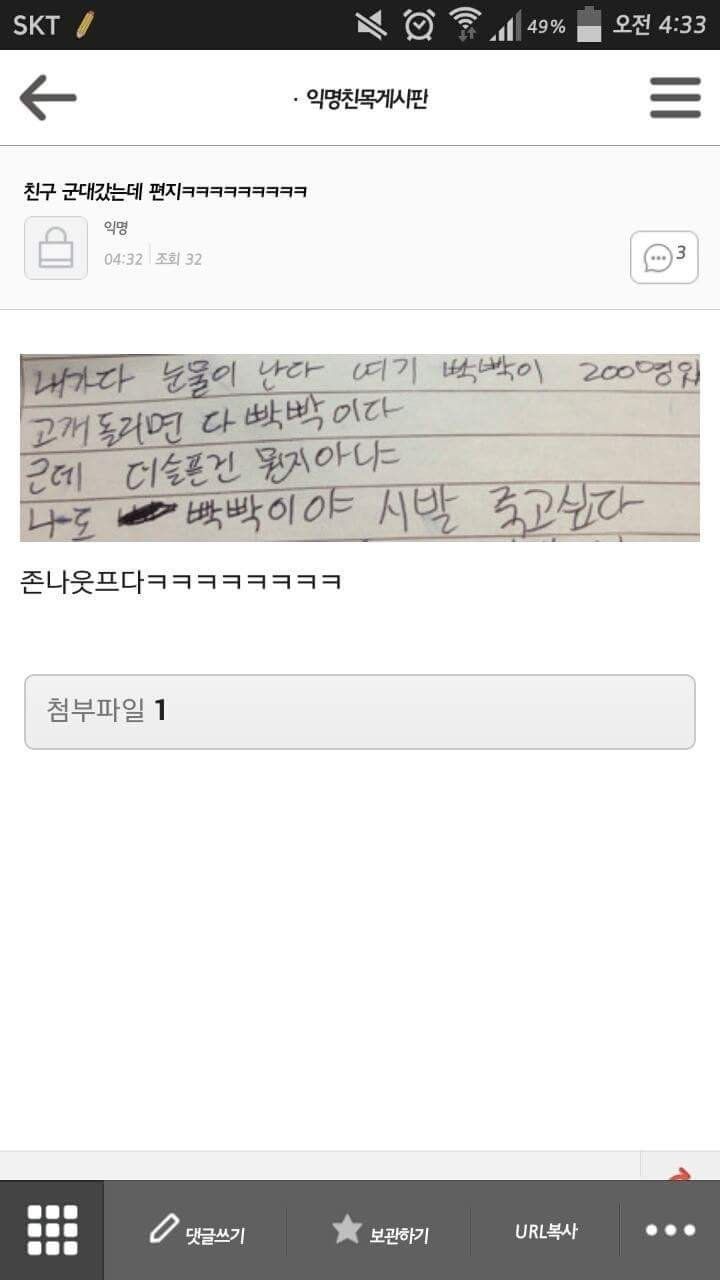 SKT 49% 오전 4:33
· 익명친목게시판
친구 군대갔는데 편지ㅋㅋㅋㅋㅋㅋㅋㅋㅋ
익명
04:32 조회 32
3
내가다 눈물이 난다 여기 빡빡이 2000명있
고개돌리면 다 빡빡이다
근데 더슬픈건 뭔지아냐
나도 빡빡이야 시발 죽고싶다
존나웃프다ㅋㅋㅋㅋㅋㅋㅋㅋ
첨부파일 1
댓글쓰기 보관하기 URL복사